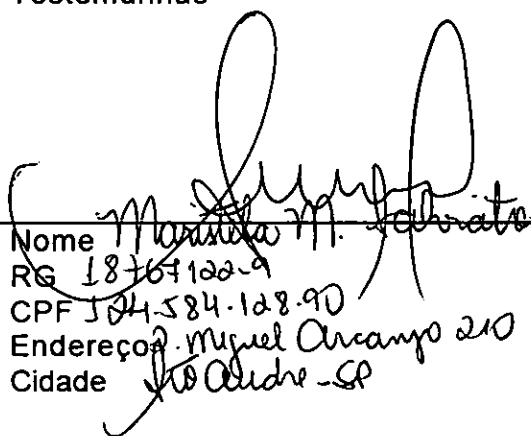 Testemunhas
Nome Maristela M.
RG 18767122-9
CPF 124.584.128.90
Endereço R. Miguel Arcanjo 210
Cidade Sto André-SP